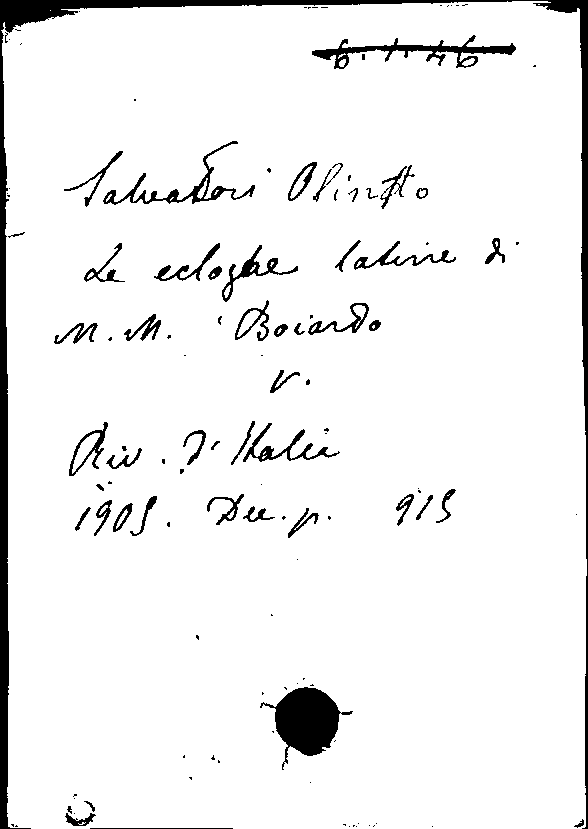 6.1.46
Salvadori Olinto
Le ecloghe latine di
M. M. Boiardo
v.
Riv. d'Italia
1905. Dec. p. 915